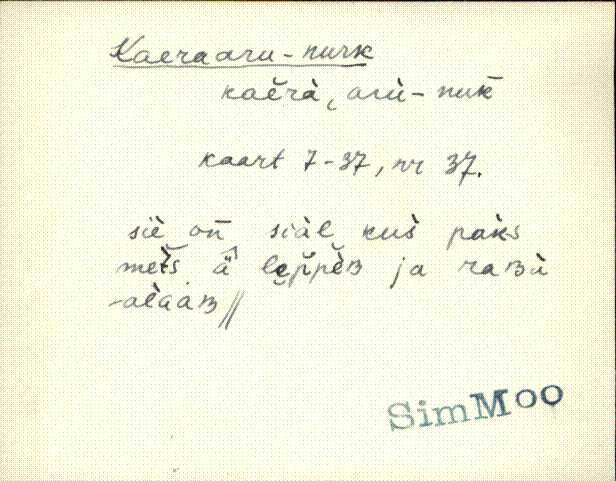 Kaeraaru-nurk
kaĕrà, arù-nuk̄
kaart 7-37, nr 37.
siè on̄ siàl kus̀ pàks
met̆s ä̂ lep̆pèʙ ja raʙà
-alàaʙ//
SimMoo